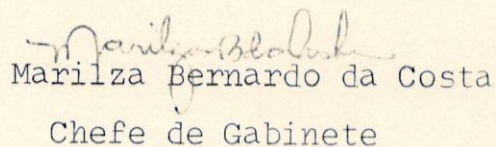 Marilza Bernardo da Costa
Chefe de Gabinete